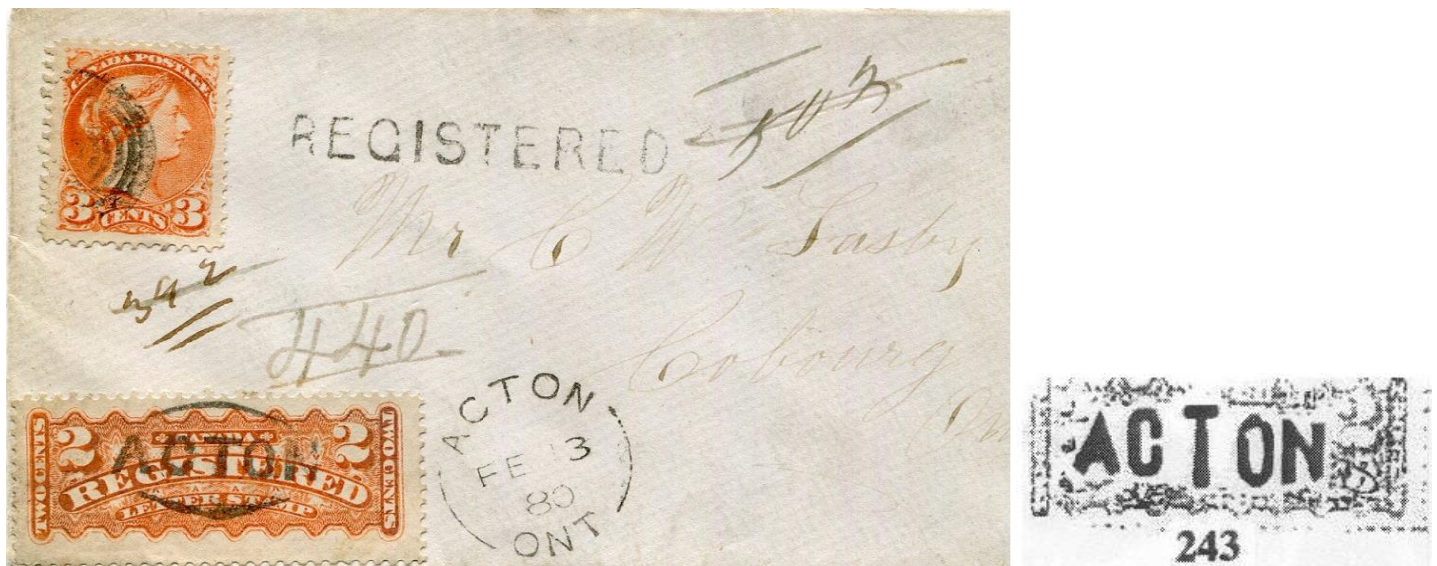 CANADA POSTAGE
3 CENTS 3
REGISTERED
502
Mr C W Sasby
Cobourg
392
440
TWO CENTS
2 CANADA 2
REGISTERED
LETTER STAMP
TWO CENTS
ACTON
ACTON
FE 13
80
ONT
ACTON
243